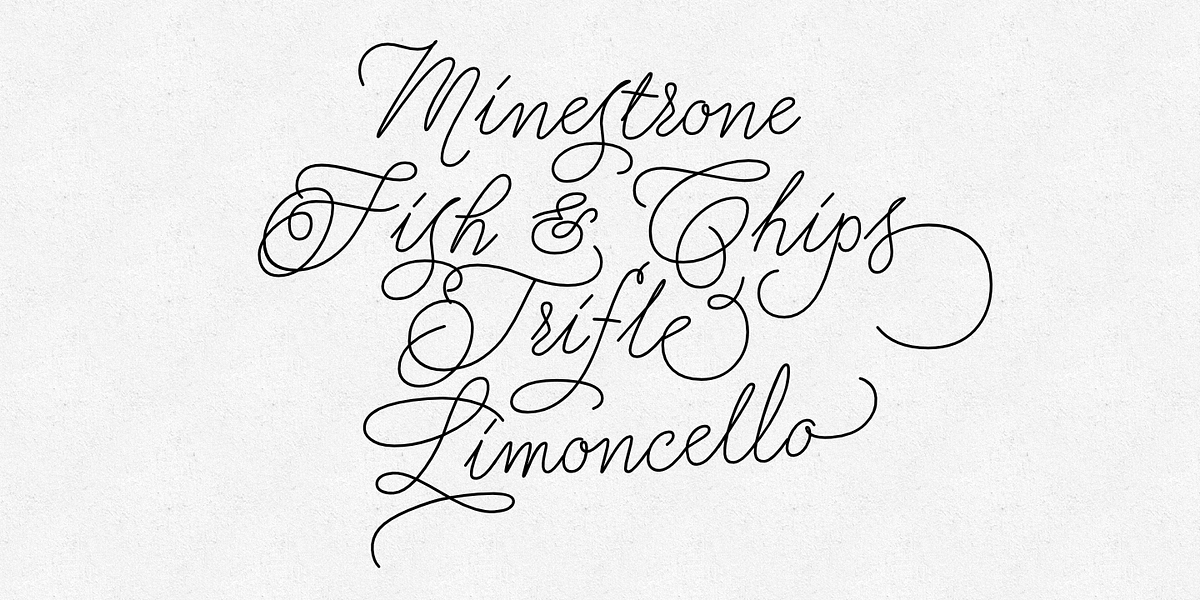 Minestrone
Fish & Chips
Trifle
Limoncello